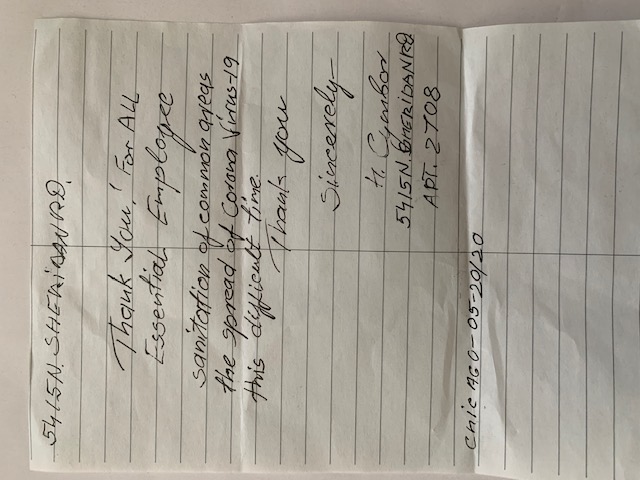 5415 N. SHERIDAN RD.
Thank You! For ALL
Essential Employee
sanitation of common areas
the spread of Corona Virus-19
this difficult time.
Thank you
Sincerely-
H. Cymbor
5415 N. SHERIDAN RD
APT. 2708
Chic AGO-05-20/20